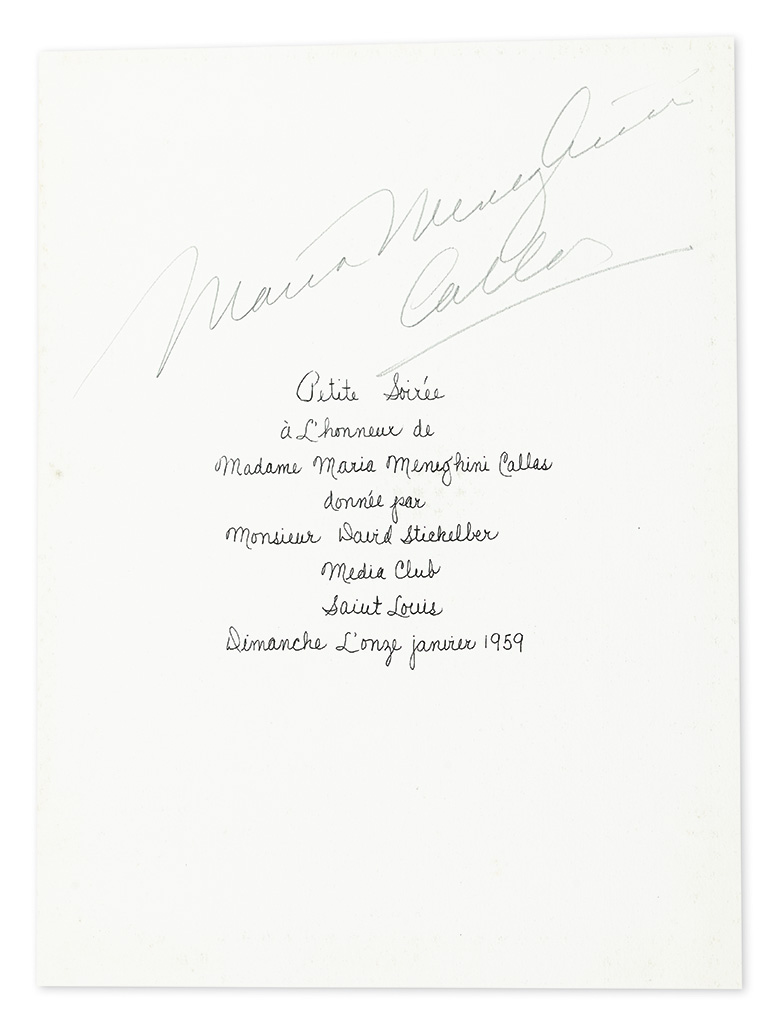 Maria Meneghini
Callas
Petite Soirée
à L'honneur de
Madame Maria Meneghini Callas
donnée par
Monsieur David Stickelber
Media Club
Saint Louis
Dimanche L'onze janvier 1959